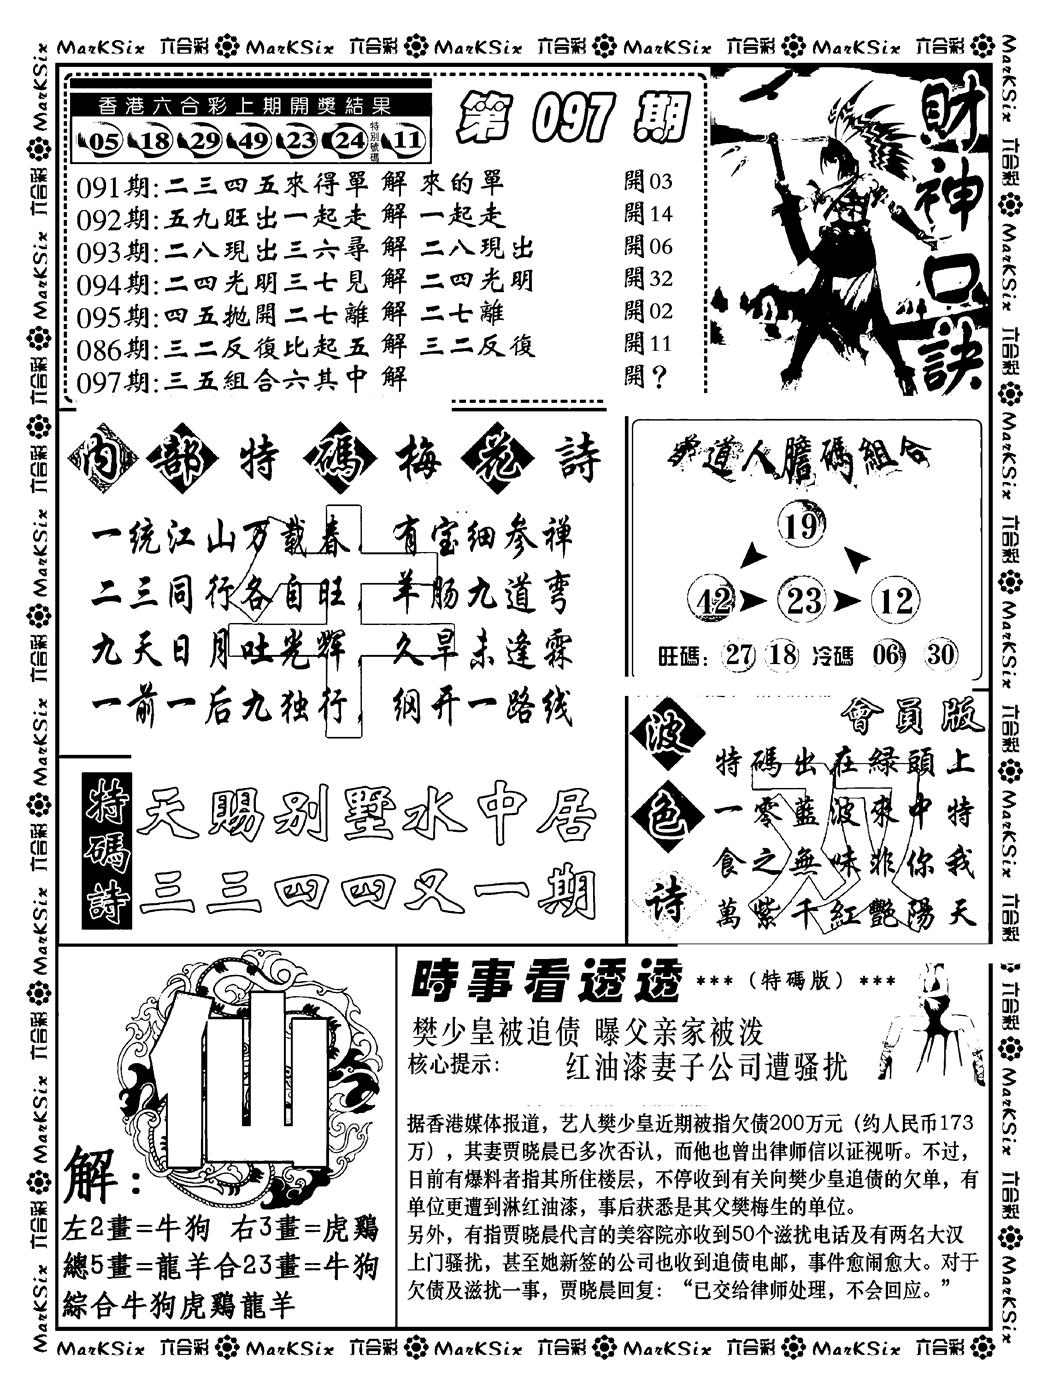 MarKSix 六合彩 MarKSix 六合彩 MarKSix 六合彩 MarKSix 六合彩 MarKSix 六合彩
香港六合彩上期開獎結果
05 18 29 49 23 24 特別號碼 11
第 097 期
財神口訣
091期:二三四五來得單 解 來的單 開03
092期:五九旺出一起走 解 一起走 開14
093期:二八現出三六尋 解 二八現出 開06
094期:二四光明三七見 解 二四光明 開32
095期:四五拋開二七離 解 二七離 開02
086期:三二反復比起五 解 三二反復 開11
097期:三五組合六其中 解 開?
內部特碼梅花詩
一统江山万载春,有宝细参禅
二三同行各自旺,羊肠九道弯
九天日月吐光辉,久旱未逢霖
一前一后九独行,纲开一路线
道人膽碼組合
19
42 23 12
旺碼:27 18 冷碼 06 30
波色诗
會員版
特碼出在綠頭上
一零藍波來中特
食之無味非你我
萬紫千紅艷陽天
特碼詩
天賜别墅水中居
三三四四又一期
仙
解:
左2畫=牛狗 右3畫=虎鷄
總5畫=龍羊合23畫=牛狗
綜合牛狗虎鷄龍羊
時事看透透 ***(特碼版)***
樊少皇被追债 曝父亲家被泼
核心提示: 红油漆妻子公司遭骚扰
据香港媒体报道，艺人樊少皇近期被指欠债200万元（约人民币173
万），其妻贾晓晨已多次否认，而他也曾出律师信以证视听。不过，
日前有爆料者指其所住楼层，不停收到有关向樊少皇追债的欠单，有
单位更遭到淋红油漆，事后获悉是其父樊梅生的单位。
另外，有指贾晓晨代言的美容院亦收到50个滋扰电话及有两名大汉
上门骚扰，甚至她新签的公司也收到追债电邮，事件愈闹愈大。对于
欠债及滋扰一事，贾晓晨回复：“已交给律师处理，不会回应。”
MarKSix 六合彩 MarKSix 六合彩 MarKSix 六合彩 MarKSix 六合彩 MarKSix 六合彩